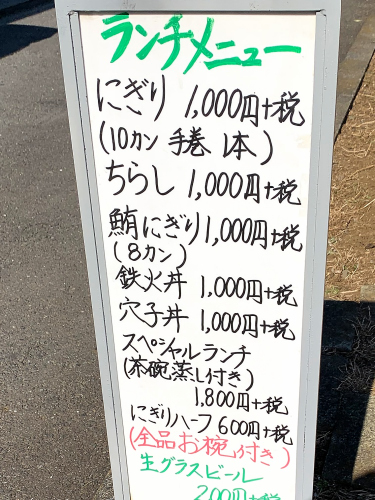 ランチメニュー
にぎり 1,000円+税
(10カン 手巻 1本)
ちらし 1,000円+税
鮪にぎり 1,000円+税
(8カン)
鉄火丼 1,000円+税
穴子丼 1,000円+税
スペシャルランチ
(茶碗蒸し付き)
1,800円+税
にぎりハーフ 600円+税
(全品お椀付き)
生グラスビール
200円+税